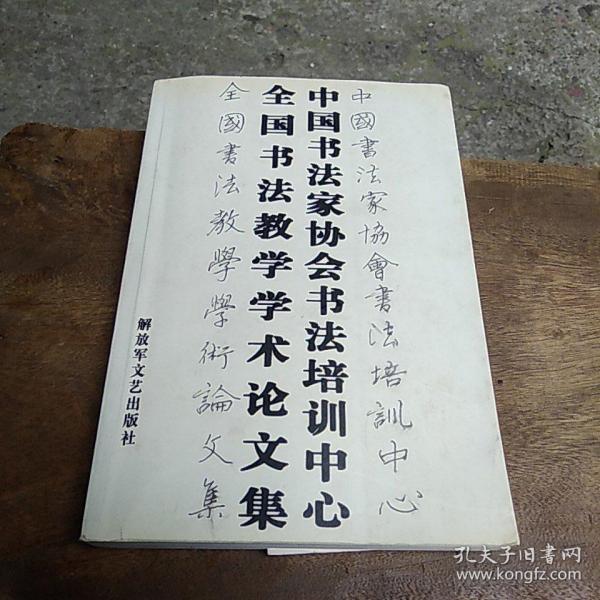 中國書法家協會書法培訓中心
中国书法家协会书法培训中心
全国书法教学学术论文集
全國書法教學學術論文集
解放军文艺出版社
孔夫子旧书网
www.kongfz.com